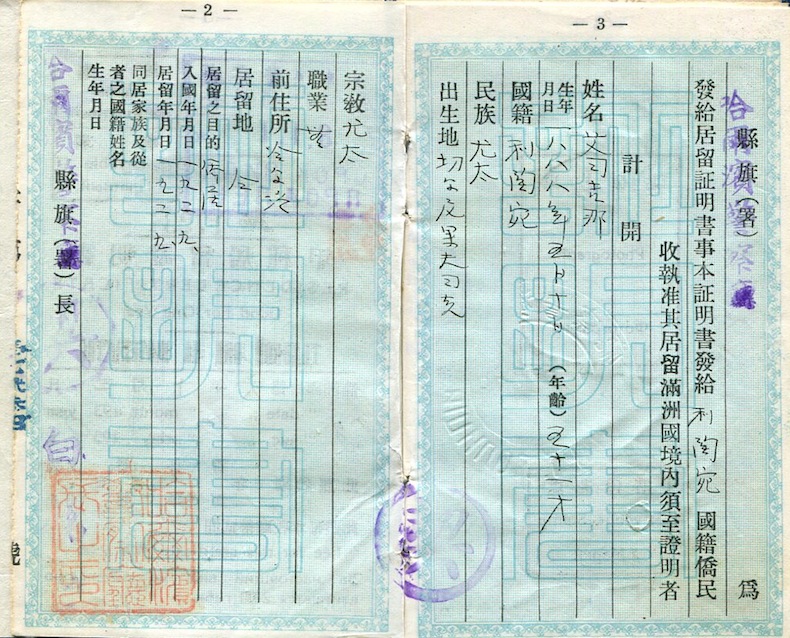 — 3 —
哈爾濱警察
縣旗（署） 為
發給居留証明書事本証明書發給 利陶宛 國籍僑民
收執准其居留滿洲國境內須至證明者
計開
姓名 艾司吉那
生年月日 一八八八年五月十日 （年齡） 五十一才
國籍 利陶宛
民族 尤太
出生地
— 2 —
宗教 尤太
職業
前住所
居留地 仝
居留之目的 僑居
入國年月日 一九二九、
居留年月日 一九二九、
同居家族及從
者之國籍姓名
生年月日
哈爾濱警察
縣旗（署）長